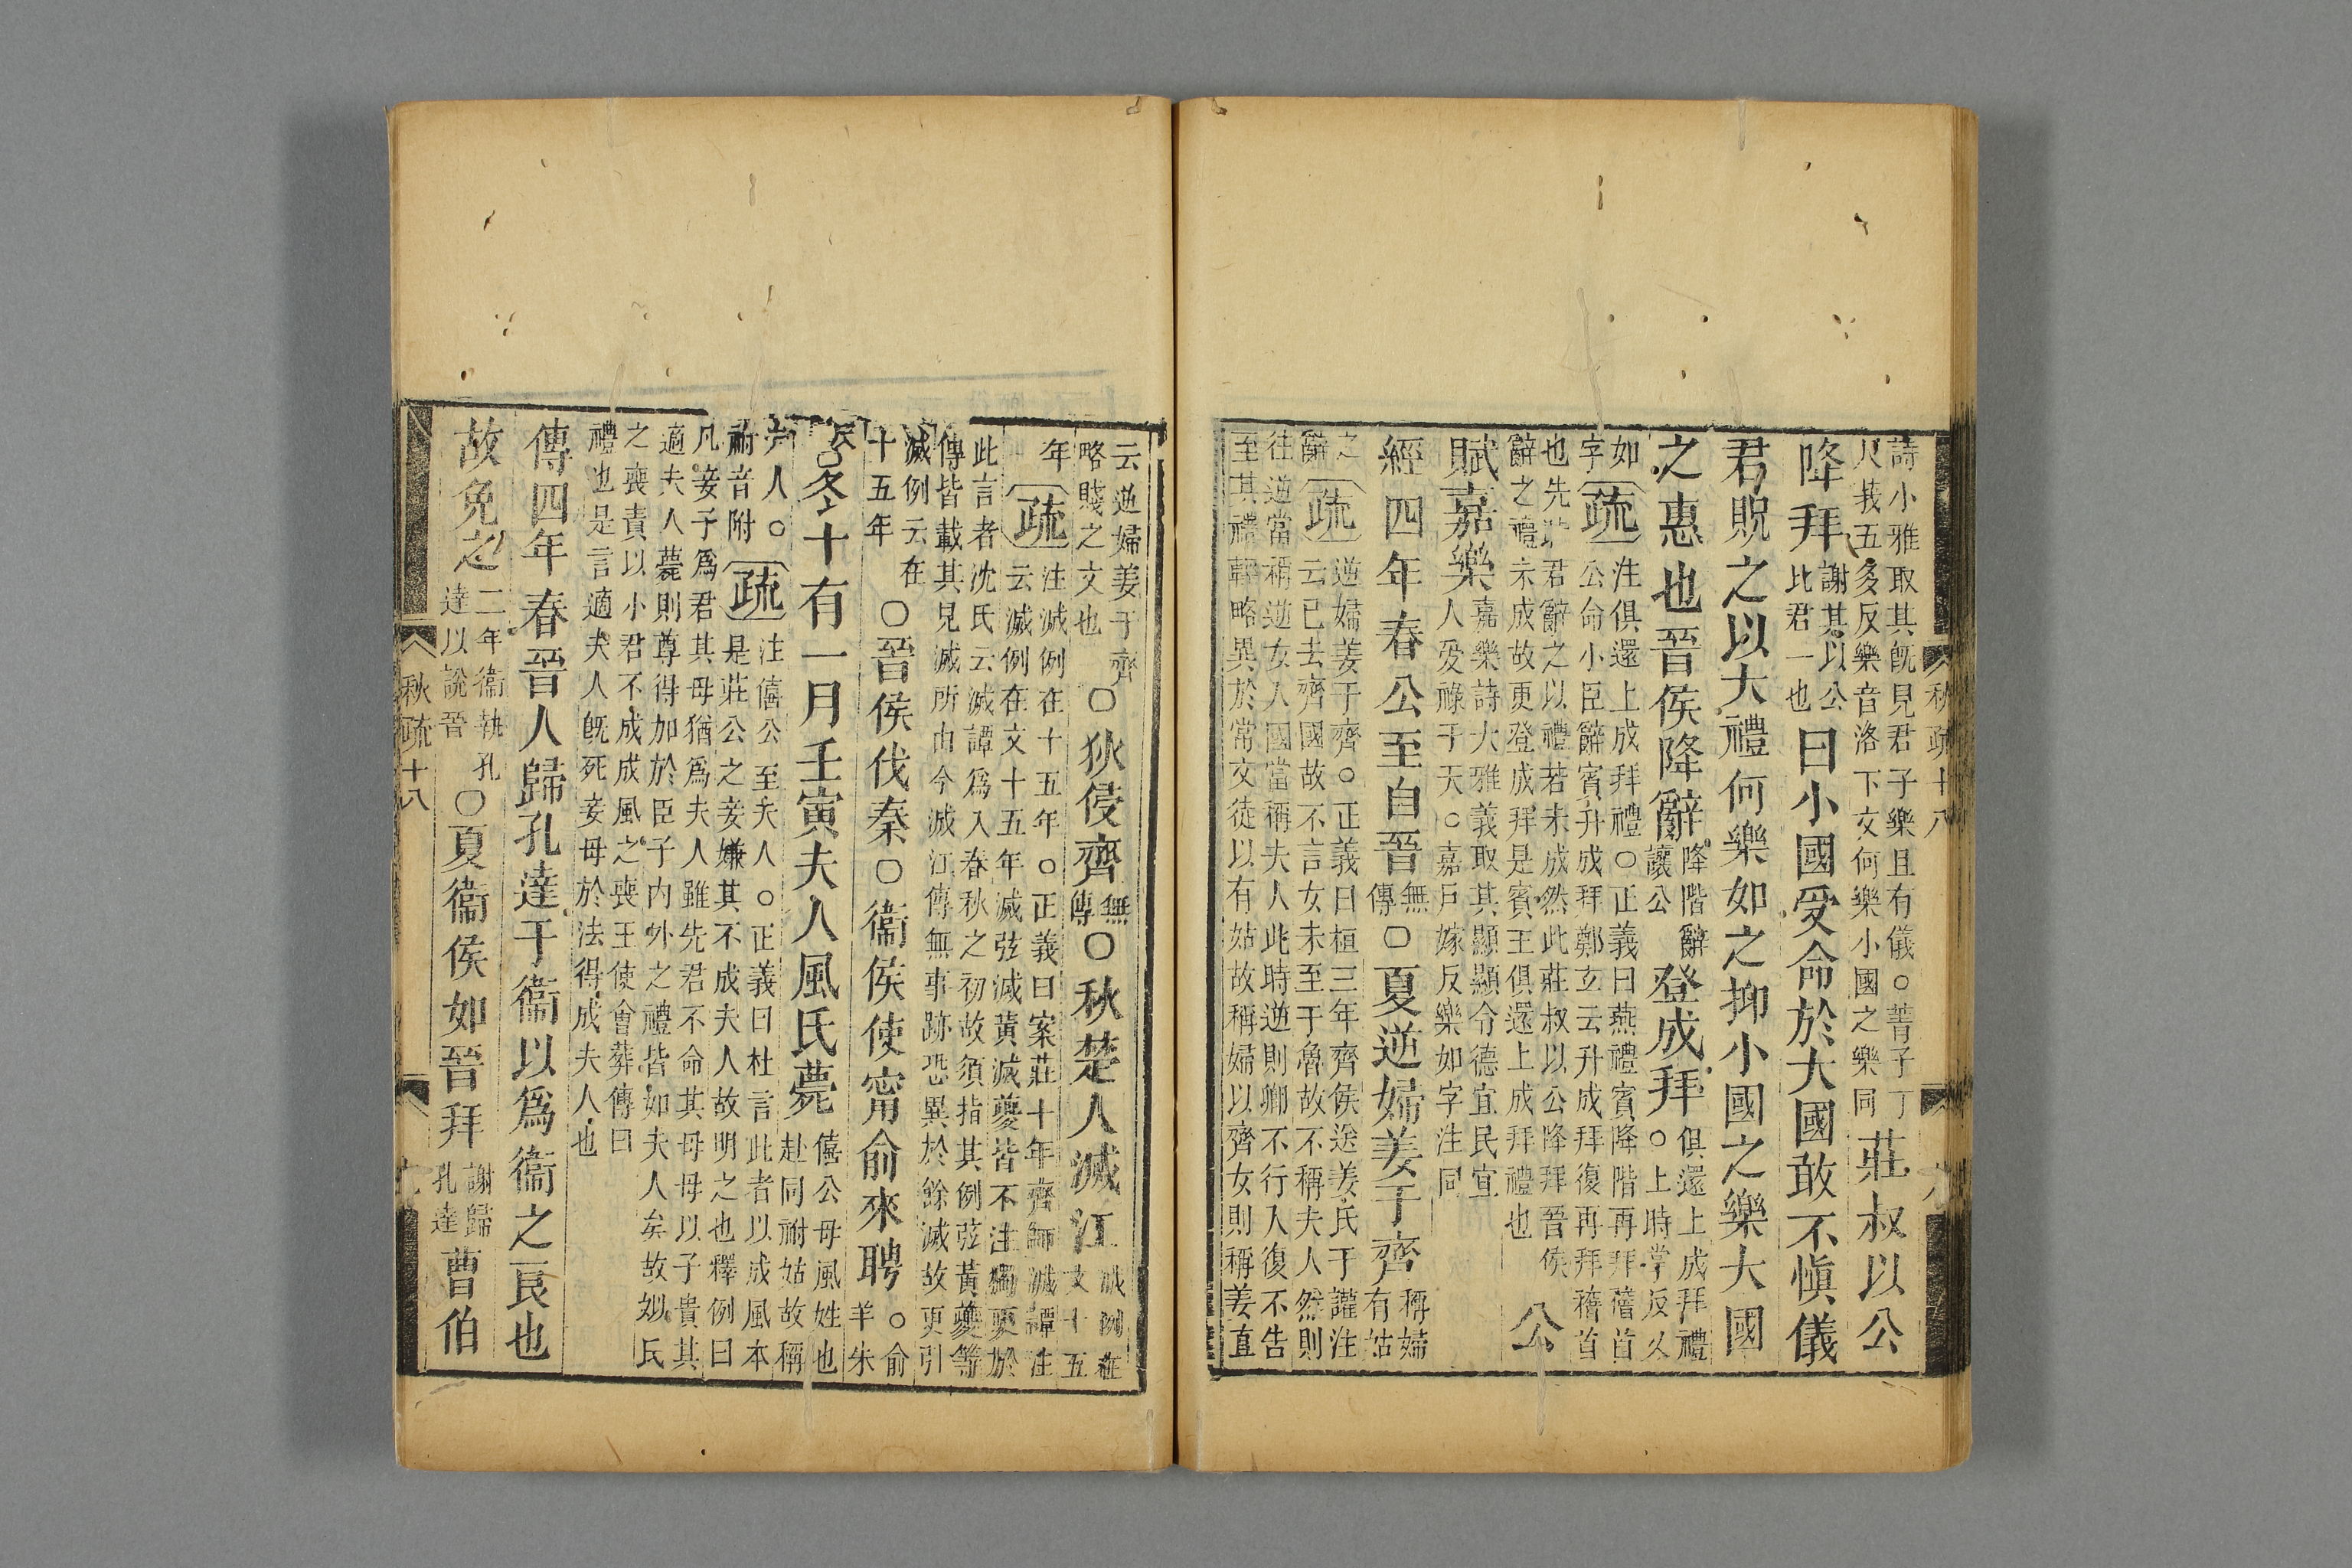 詩小雅取其旣見君子樂且有儀○菁子丁
尺莪五多反樂音洛下文何樂小國之樂同
莊叔以公
降拜
謝其以公
比君一也
曰小國受命於大國敢不愼儀
君貺之以大禮何樂如之抑小國之樂大國
之惠也晉侯降辭
降階辭
讓公
登成拜
俱還上成拜禮
○上時掌反久
如
字
疏
注俱還上成拜禮○正義曰燕禮賓降階再拜稽首
公命小臣辭賓升成拜鄭玄云升成拜復再拜稽首
也先
君辭之以禮若未成然此莊叔以公降拜晉侯
辭之禮未成故更登成拜是賓主俱還上成拜禮也
公
賦嘉樂
嘉樂詩大雅義取其顯顯令德宜民宜
人受祿于天○嘉戶嫁反樂如字注同
經四年春公至自晉
無
傳
○夏逆婦姜于齊
稱婦
有姑
之
辭
疏
逆婦姜于齊○正義曰桓三年齊侯送姜氏于讙注
云已去齊國故不言女未至于魯故不稱夫人然則
往逆當稱逆女入國當稱夫人此時逆則卿不行入復不告
至其禮輕略異於常文徒以有姑故稱婦以齊女則稱姜直
秋疏十八
云逆婦姜于齊
略賤之文也
○狄侵齊
無
傳
○秋楚人滅江
滅例在
文十五
年
疏
注滅例在十五年○正義曰案莊十年齊師滅譚注
云滅例在文十五年滅弦滅黃滅夔皆不注獨更於
此言者沈氏云滅譚爲入春秋之初故須指其例弦黃夔等
傳皆載其見滅所由今滅江傳無事跡恐異於餘滅故更引
滅例云在
十五年
○晉侯伐秦○衞侯使甯俞來聘
○俞
羊朱
反
○冬十有一月壬寅夫人風氏薨
僖公母風姓也
赴同祔姑故稱
夫人○
祔音附
疏
注僖公至夫人○正義曰杜言此者以成風本
是莊公之妾嫌其不成夫人故明之也釋例曰
凡妾子爲君其母猶爲夫人雖先君不命其母母以子貴其
適夫人薨則尊得加於臣子內外之禮皆如夫人矣故姒氏
之喪責以小君不成成風之喪王使會葬傳曰
禮也是言適夫人旣死妾母於法得成夫人也
傳四年春晉人歸孔達于衞以爲衞之良也
故免之
二年衞執孔
達以說晉
○夏衞侯如晉拜
謝歸
孔達
曹伯
秋疏十八